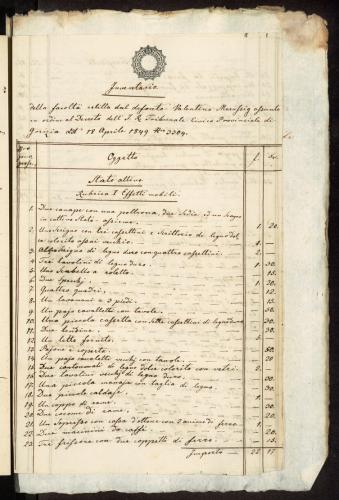 Inventario
della facoltà relitta dal defonto Valentino Marussig assunto
in ordine al Decreto dell' I. R. Tribunale Civico Provinciale di
Gorizia dd. 18 Aprile 1849 No 3304.
Oggetto f. Xr.
Stato attivo
Rubrica I Effetti mobili.
1. Due canape con una poltrona, due Sedie, ed un scagno
in cattivo stato assieme. 1 20.
2. Uno Scrigno con tre cassettini e Scrittorio di legno dol
ce colorito assai vecchio. 4 —
3. Altro Scrigno di legno duro con quattro cassettini. 2 —
4. Tre tavolini di legno duro. 1 30.
5. Uno Scabello a roletto. — 15.
6. Due Specchj — 30.
7. Quattro quadri. — 12.
8. Un lavamani a 3 piedi. — 15.
9. Un pajo cavalletti con tavole. — 30.
10. Una piccola cassetta con sette cassettini di legno duro — 30.
11. Due tendine. — 30.
12. Un letto fornito. 5 —
13. Pajone e coperta. — 50
14. Un pajo cavaletti vecchj con tavole. — 20
15. Due cantonali di legno dolce colorito con vetri. 2 —
16. Due tavolini vecchj di legno duro. — 30.
17. Una piccola monaja con taglia di legno. — 30.
18. Due piccole caldaje. 1 —
19. Un coppo di rame. — 30.
20. Due cocome di rame. — 20.
21. Un Sopresso con cassa d'ottone con 2 anime di ferro 1 —
22. Due macinini da caffè. — 20.
23. Tre frissore con due coppetti di ferro. — 15.
Importo 22 17